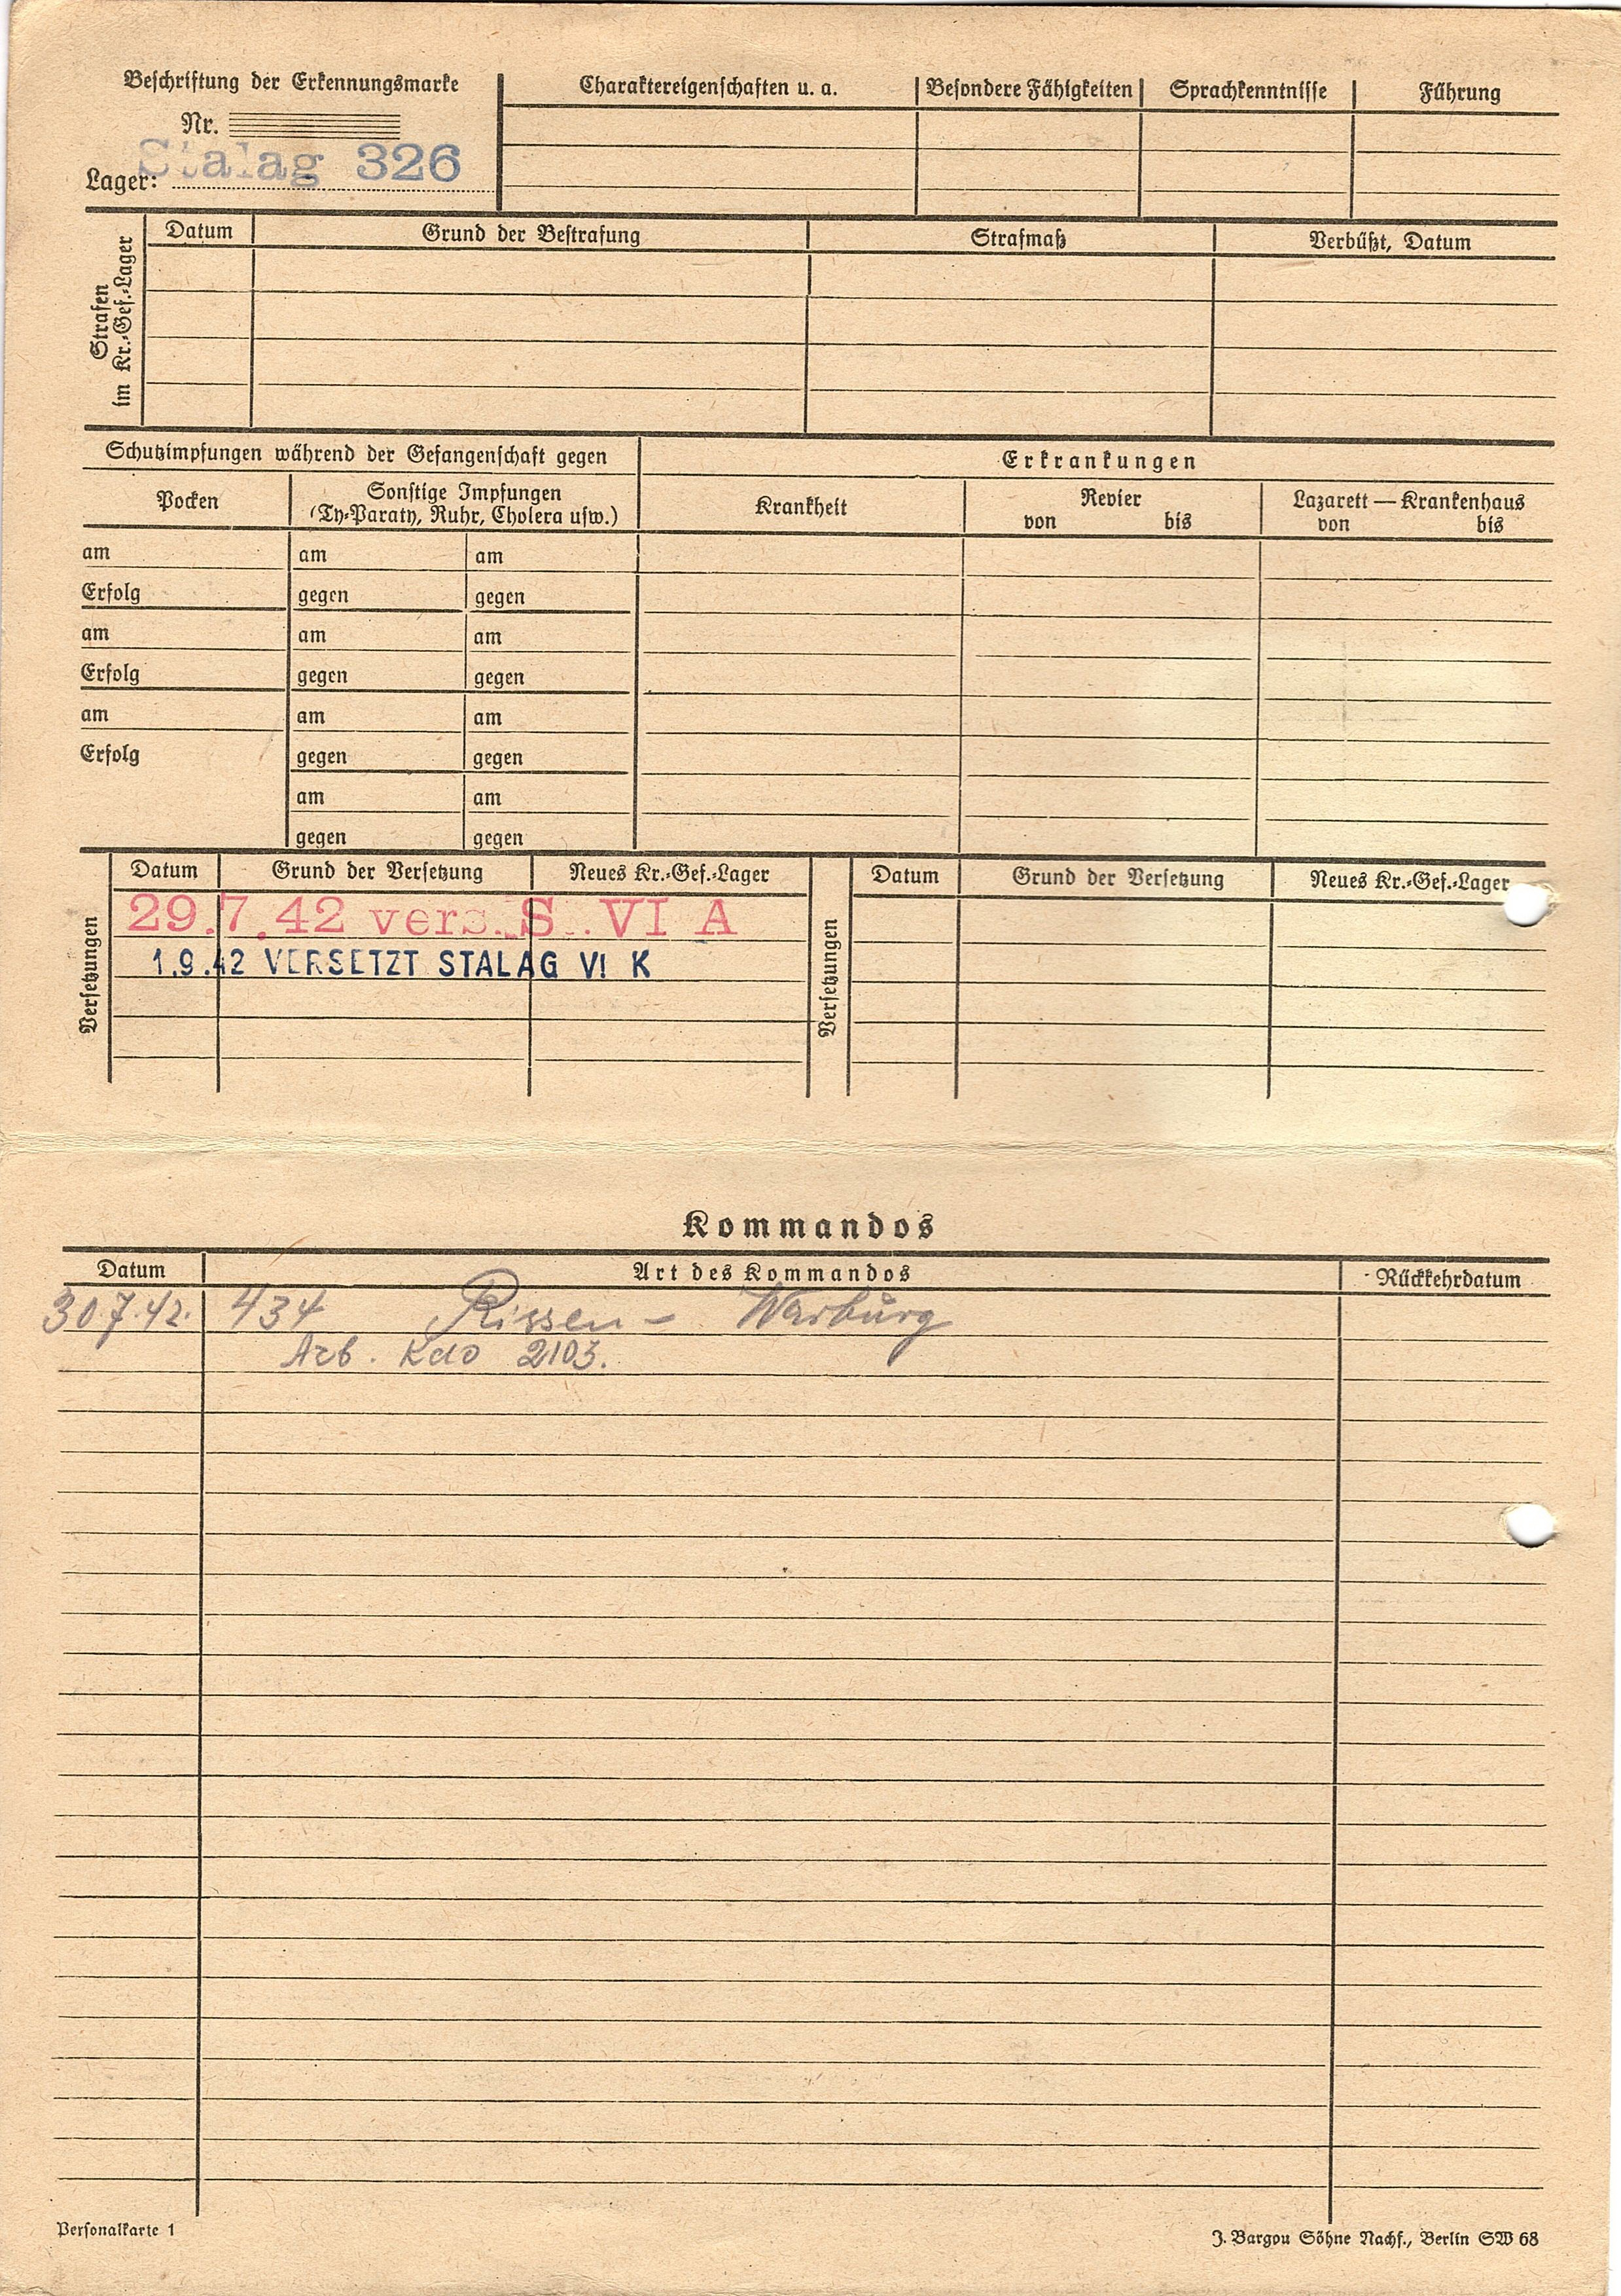 Beschriftung der Erkennungsmarke
Nr.
Lager: Stalag 326
Charaktereigenschaften u. a. Besondere Fähigkeiten Sprachkenntnisse Führung
Strafen im Kr.-Gef.-Lager
Datum Grund der Bestrafung Strafmaß Verbüßt, Datum
Schutzimpfungen während der Gefangenschaft gegen Erkrankungen
Pocken Sonstige Impfungen Krankheit Revier Lazarett — Krankenhaus
(Ty-Paraty, Ruhr, Cholera usw.) von bis von bis
am am am
Erfolg gegen gegen
am am am
Erfolg gegen gegen
am am am
Erfolg gegen gegen
am am
gegen gegen
Versetzungen
Datum Grund der Versetzung Neues Kr.-Gef.-Lager
29.7.42 vers. S. VI A
1.9.42 VERSETZT STALAG VI K
Versetzungen
Datum Grund der Versetzung Neues Kr.-Gef.-Lager
Kommandos
Datum Art des Kommandos Rückkehrdatum
30.7.42. 434 Rissen - Warburg
Arb. Kdo 2103.
Personalkarte 1
J. Bargou Söhne Nachf., Berlin SW 68